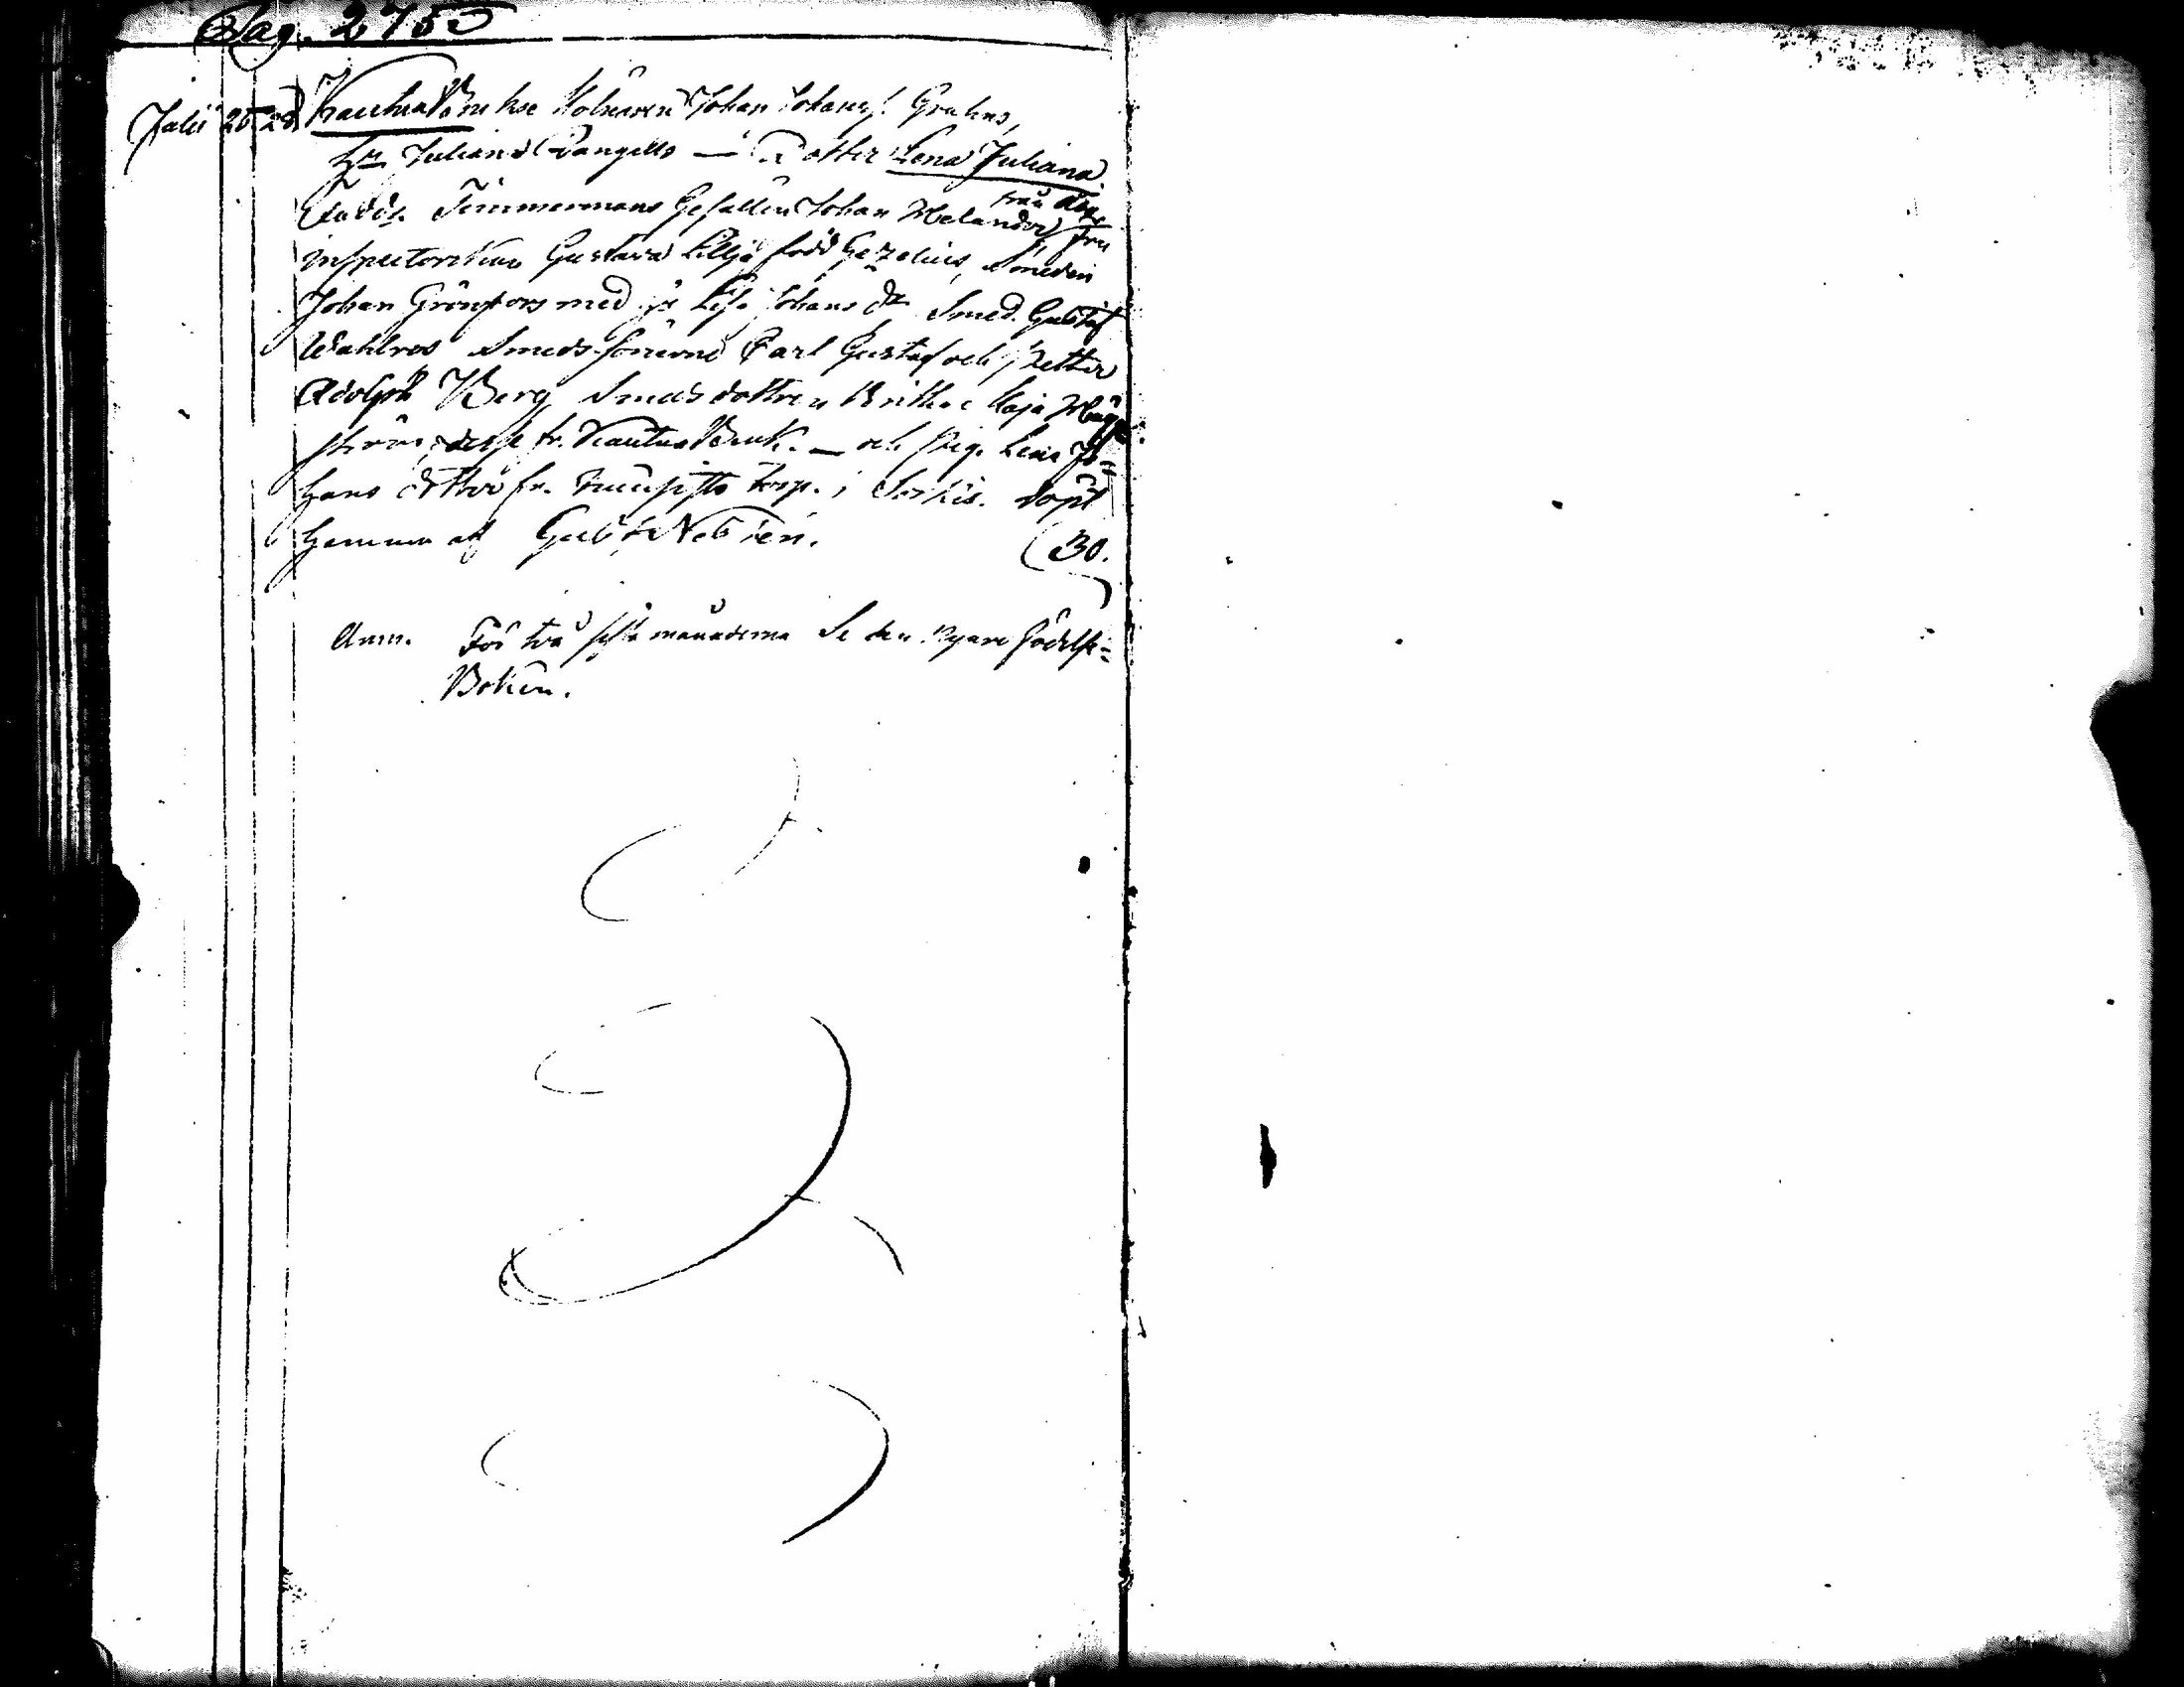 Pag. 275
Julii 25 28 Kautua Bruk Kolaren Johan Johanss. Grahns,
h. Juliana Rangells — Dotter Lena Juliana.
Fadd. Timmermans Gesällen Johan Helander från Åbo, Fru
inspectorskan Gustava Lilja född Gezelius, Smeden
Johan Grönfors med h. Lisa Johans dr Smed. Gustaf
Wahlros Smeds sönerne Carl Gustaf och Petter
Adolph Berg Smeds dottren Britha Maja Häg
ström, desse fr. Kautua Bruk. — och pig. Lena Jo=
hans dotter fr. torp. i Sorkis. döpt
hemma af Gust. Nebien. (30.
Anm. För två sista månaderna Se den nyare Födelse=
Boken.